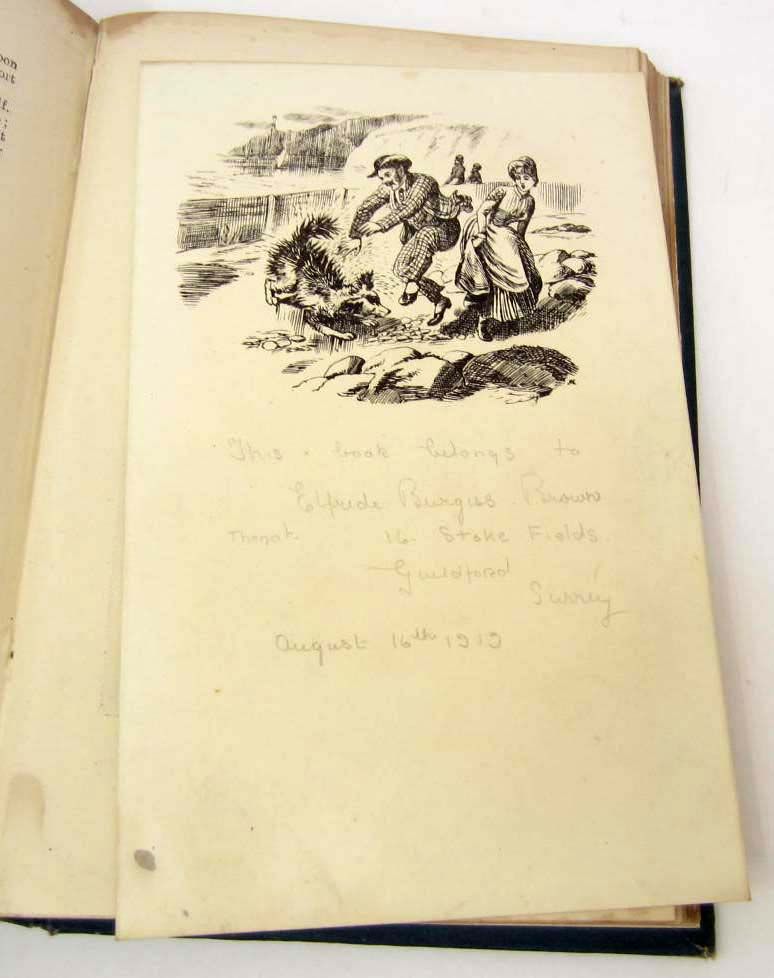 oon
ort
lf.
;
t
This book belongs to
Elfride Burgiss Brown
16 Stoke Fields
Guildford
Surrey
August 16th 1919